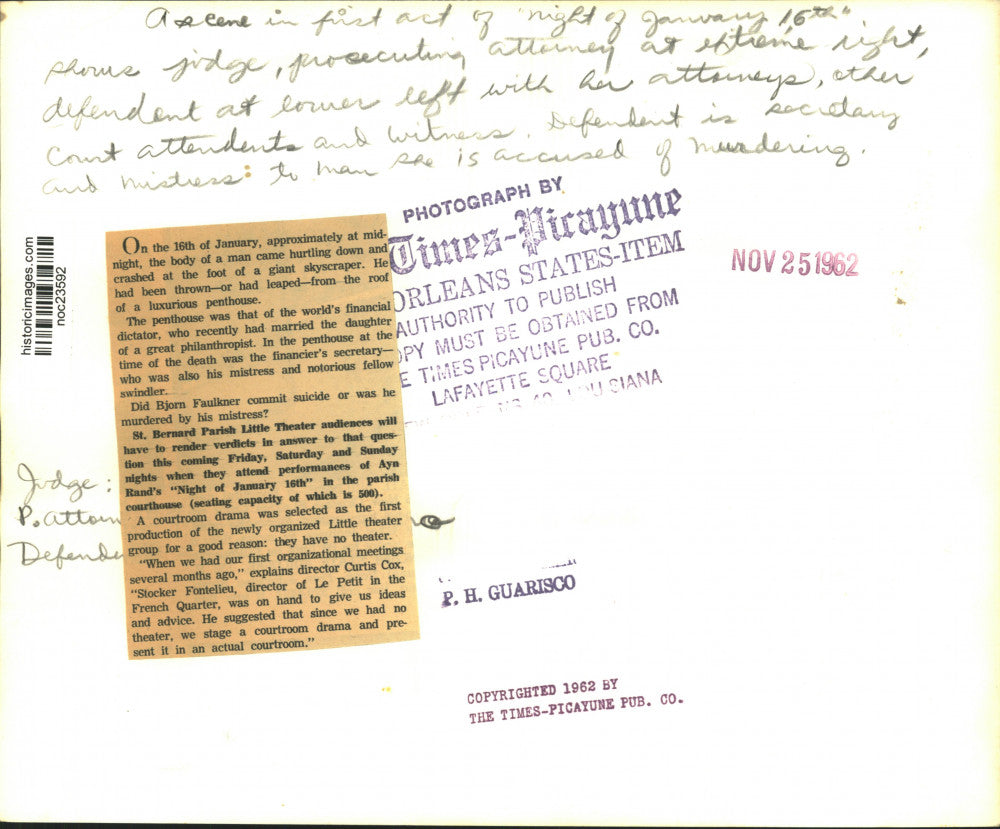 A scene in first act of "night of January 16th"
shows judge, prosecuting attorney at extreme right,
defendent at lower left with her attorneys, other
Court attendents and witness. Defendent is secretary
and mistress to man she is accused of murdering.
historicimages.com
noc23592
On the 16th of January, approximately at mid-
night, the body of a man came hurtling down and
crashed at the foot of a giant skyscraper. He
had been thrown—or had leaped—from the roof
of a luxurious penthouse.
The penthouse was that of the world's financial
dictator, who recently had married the daughter
of a great philanthropist. In the penthouse at the
time of the death was the financier's secretary—
who was also his mistress and notorious fellow
swindler.
Did Bjorn Faulkner commit suicide or was he
murdered by his mistress?
St. Bernard Parish Little Theater audiences will
have to render verdicts in answer to that ques-
tion this coming Friday, Saturday and Sunday
nights when they attend performances of Ayn
Rand's "Night of January 16th" in the parish
courthouse (seating capacity of which is 500).
A courtroom drama was selected as the first
production of the newly organized Little theater
group for a good reason: they have no theater.
"When we had our first organizational meetings
several months ago," explains director Curtis Cox,
"Stocker Fontelieu, director of Le Petit in the
French Quarter, was on hand to give us ideas
and advice. He suggested that since we had no
theater, we stage a courtroom drama and pre-
sent it in an actual courtroom."
PHOTOGRAPH BY
Times-Picayune
ORLEANS STATES-ITEM
AUTHORITY TO PUBLISH
OPY MUST BE OBTAINED FROM
E TIMES PICAYUNE PUB. CO.
LAFAYETTE SQUARE
NOV 25 1962
Judge:
P. attorn
Defende
P. H. GUARISCO
COPYRIGHTED 1962 BY
THE TIMES-PICAYUNE PUB. CO.